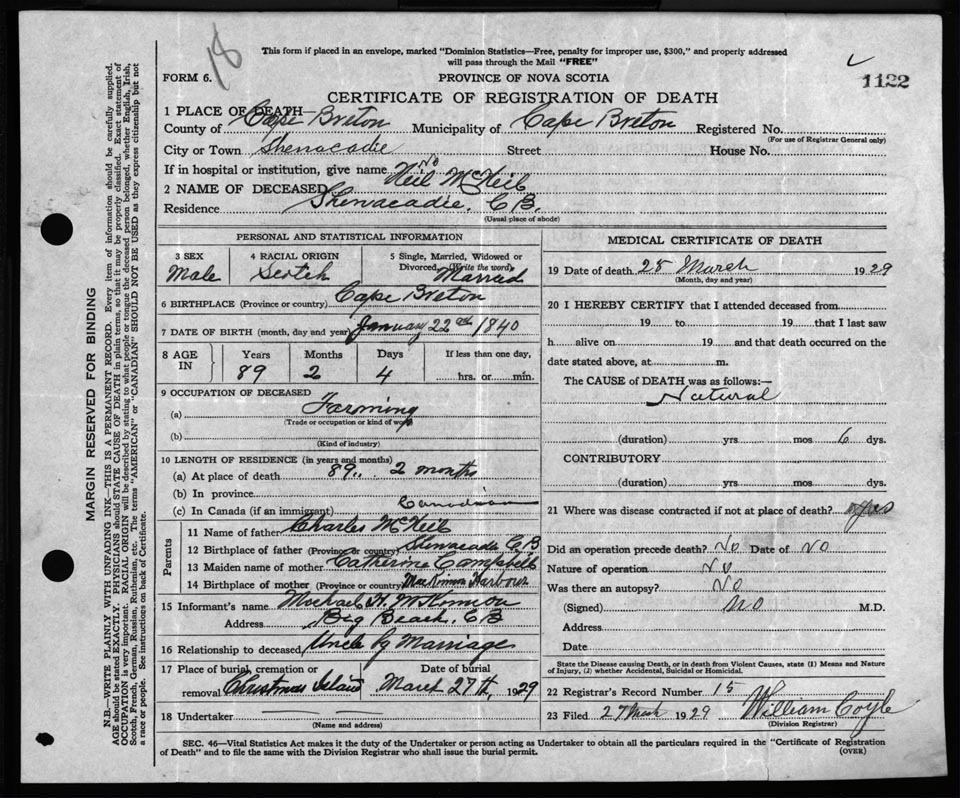 18
This form if placed in an envelope, marked "Dominion Statistics—Free, penalty for improper use, $300," and properly addressed
will pass through the Mail "FREE"
FORM 6.
PROVINCE OF NOVA SCOTIA
1122
CERTIFICATE OF REGISTRATION OF DEATH
1 PLACE OF DEATH—
County of Cape Breton Municipality of Cape Breton Registered No.
(For use of Registrar General only)
City or Town Shenacadie Street House No.
If in hospital or institution, give name No
2 NAME OF DECEASED Neil McNeil
Residence Shenacadie. C B.
(Usual place of abode)
PERSONAL AND STATISTICAL INFORMATION
3 SEX Male
4 RACIAL ORIGIN Scotch
5 Single, Married, Widowed or Divorced (Write the word) Married
6 BIRTHPLACE (Province or country) Cape Breton
7 DATE OF BIRTH (month, day and year) January 22nd 1840
8 AGE IN Years 89 Months 2 Days 4 If less than one day, hrs. or min.
9 OCCUPATION OF DECEASED
(a) Farming
(Trade or occupation or kind of work)
(b)
(Kind of industry)
10 LENGTH OF RESIDENCE (in years and months)
(a) At place of death 89 .. 2 months
(b) In province
(c) In Canada (if an immigrant) Canadian
Parents
11 Name of father Charles McNeil
12 Birthplace of father (Province or country) Shenacadie C B
13 Maiden name of mother Catherine Campbell
14 Birthplace of mother (Province or country) Harbour
15 Informant's name Michael H. McKinnon
Address Big Beach. C B
16 Relationship to deceased Uncle By Marriage
17 Place of burial, cremation or removal Christmas Island
Date of burial March 27th, 1929
18 Undertaker
(Name and address)
MEDICAL CERTIFICATE OF DEATH
19 Date of death 25 March 1929
(Month, day and year)
20 I HEREBY CERTIFY that I attended deceased from
19 to 19 that I last saw
h alive on 19 and that death occurred on the
date stated above, at m.
The CAUSE of DEATH was as follows:—
Natural
(duration) yrs mos 6 dys.
CONTRIBUTORY
(duration) yrs mos dys.
21 Where was disease contracted if not at place of death? yes
Did an operation precede death? No Date of No
Nature of operation No
Was there an autopsy? No
(Signed) No M.D.
Address
Date
State the Disease causing Death, or in death from Violent Causes, state (1) Means and Nature
of Injury, (2) whether Accidental, Suicidal or Homicidal.
22 Registrar's Record Number 15
23 Filed 27 March 1929 William Coyle
(Division Registrar)
SEC. 46—Vital Statistics Act makes it the duty of the Undertaker or person acting as Undertaker to obtain all the particulars required in the "Certificate of Registration
of Death" and to file the same with the Division Registrar who shall issue the burial permit.
(OVER)
MARGIN RESERVED FOR BINDING
N.B.—WRITE PLAINLY WITH UNFADING INK—THIS IS A PERMANENT RECORD. Every item of information should be carefully supplied.
AGE should be stated EXACTLY. PHYSICIANS should STATE CAUSE OF DEATH in plain terms, so that it may be properly classified. Exact statement of
OCCUPATION is very important. RACIAL ORIGIN will be described by stating to what people or tongue the deceased person belonged, whether English, Irish,
Scotch, French, German, Russian, Ruthenian, etc. The terms "AMERICAN" or "CANADIAN" SHOULD NOT BE USED as they express citizenship but not
a race or people. See instructions on back of Certificate.